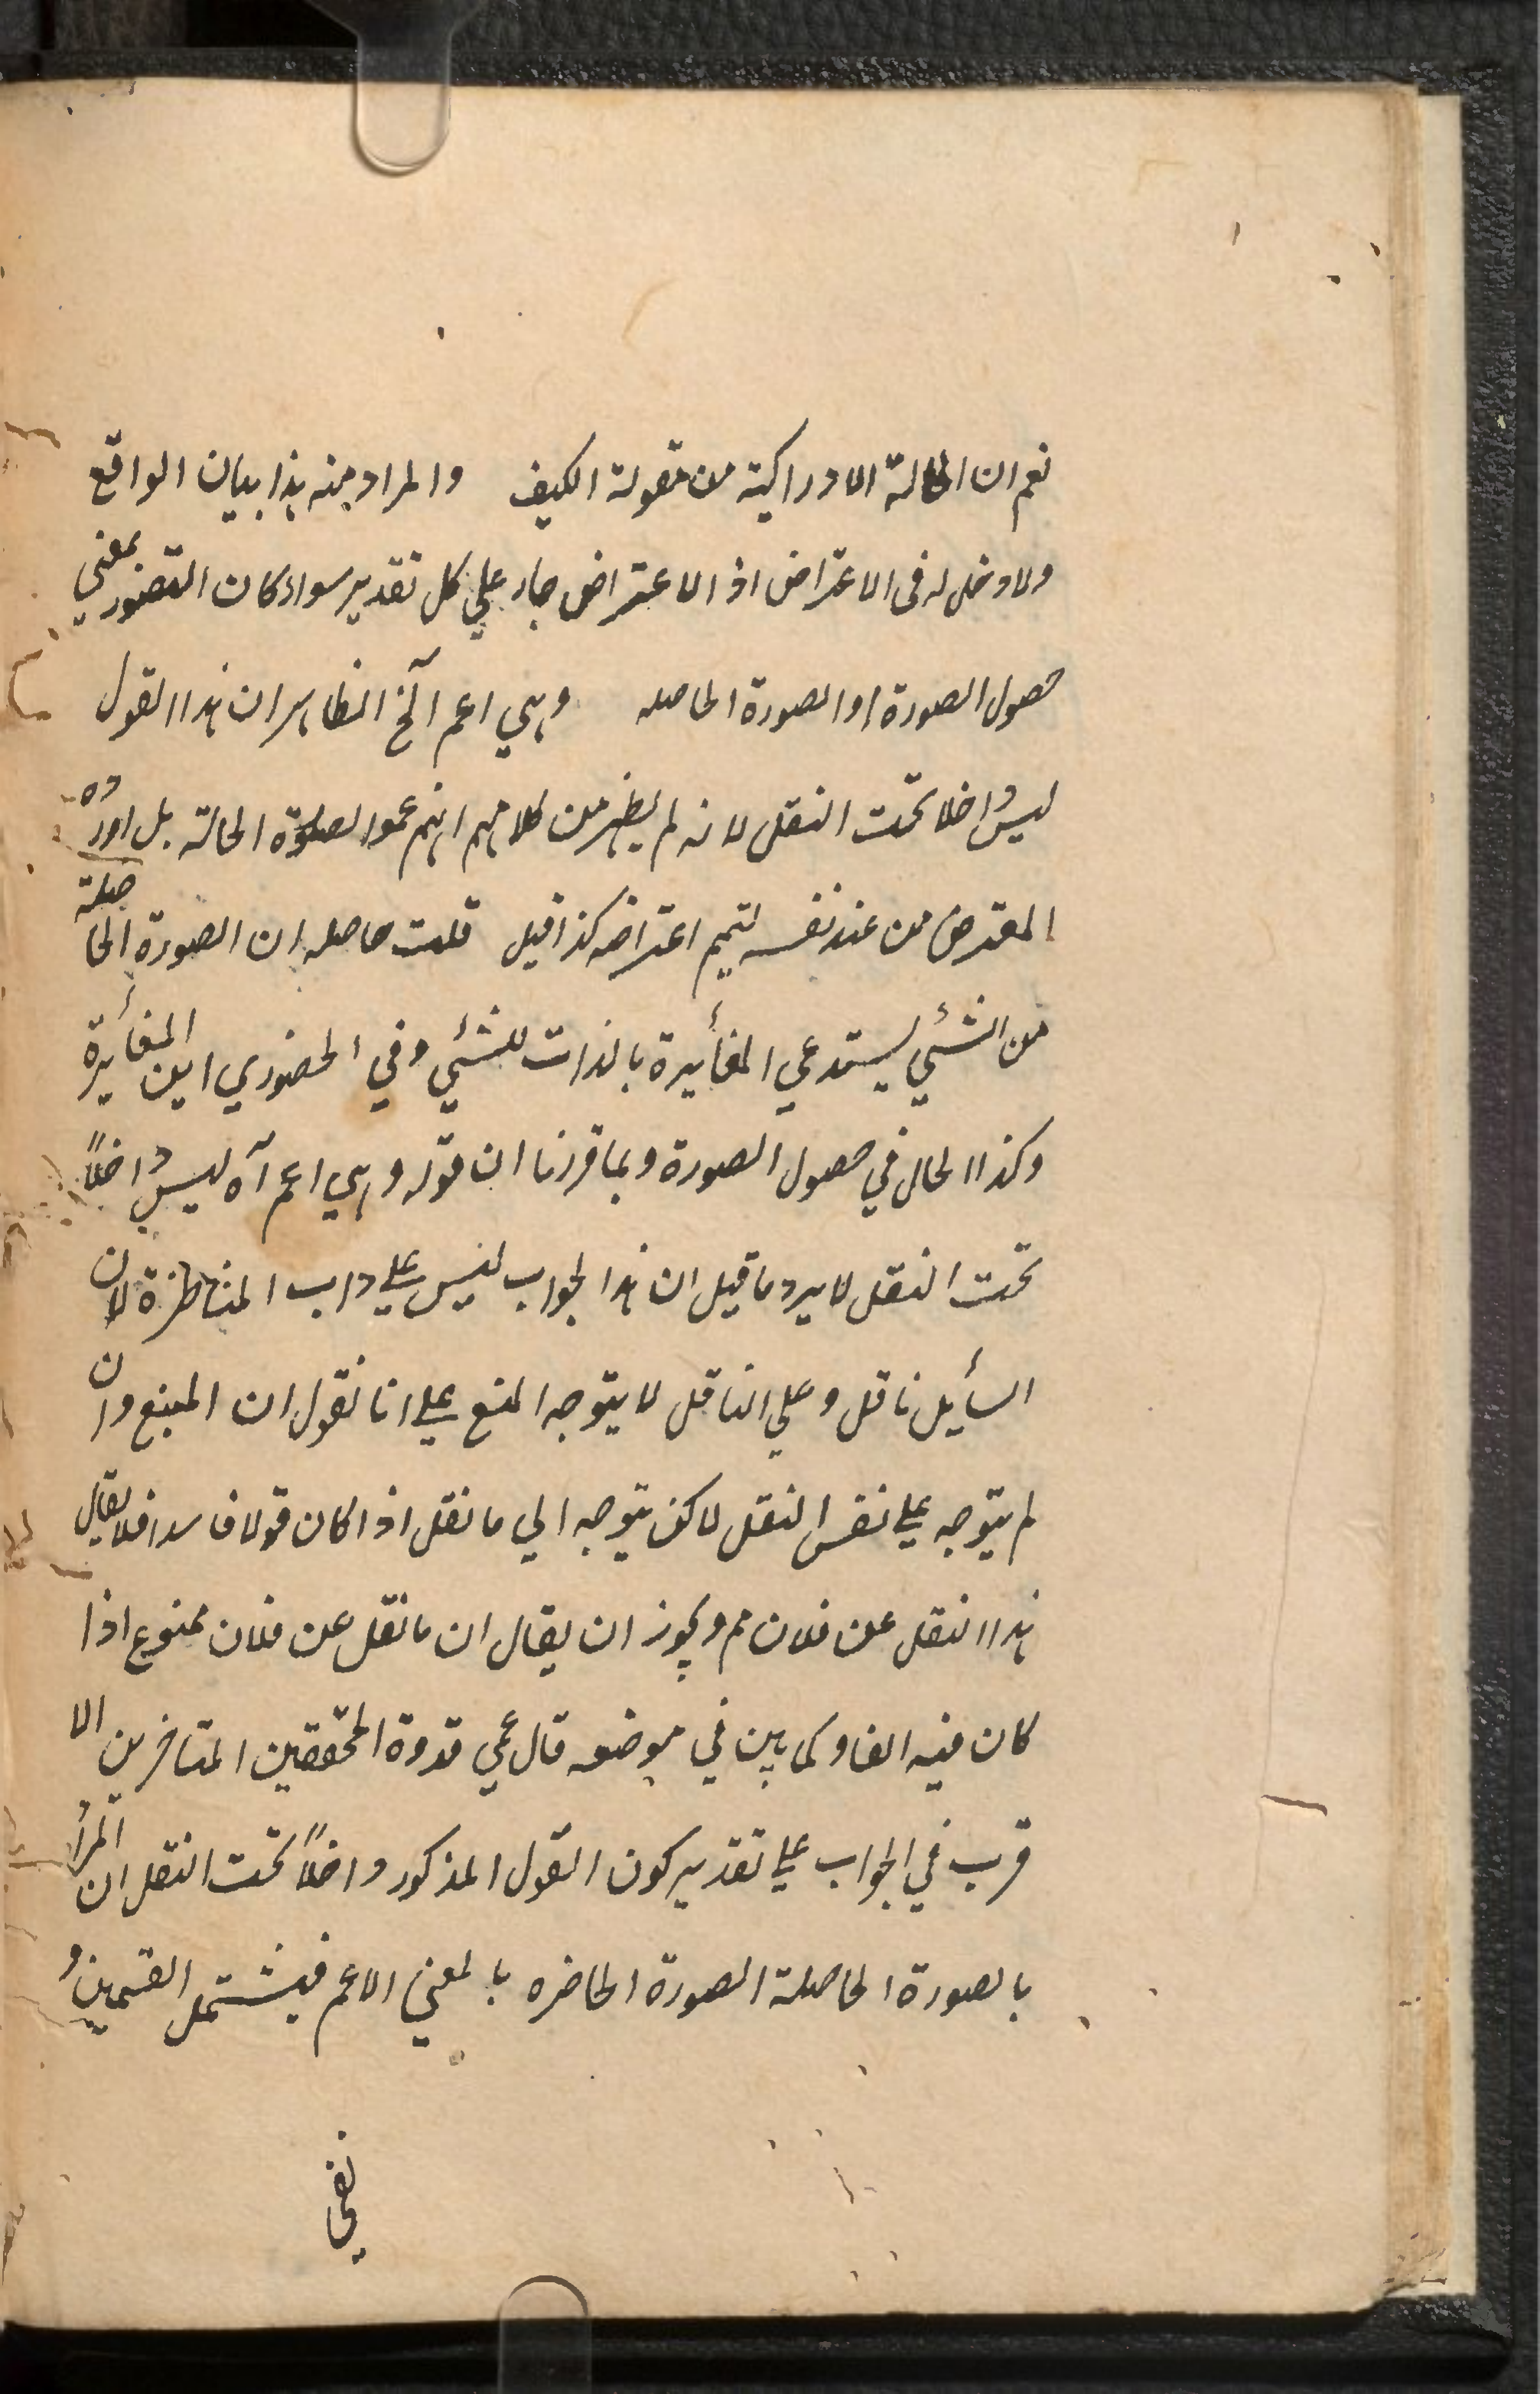 نعم ان الحالة الادراكية من مقولة الكيف والمراد منه هذا بيان الواقع
ولا دخل له فى الاعتراض اذ الاعتراض جار علي كل تقدير سواء كان التصور بمعني
حصول الصورة او الصورة الحاصله وهي اعم آلخ الظاهر ان هذا القول
ليس داخلا تحت النقل لانه لم يظهر من كلامهم انهم عموا الصورة الحالة بل اورده
المعترض من عند نفسه لتميم اعتراضه كذا قيل قلت حاصله ان الصورة الحاصلة
من الشئي يستدعي المغأيرة بالذات للشئي وفي الحضوري اين المغأيرة
وكذا الحال في حصول الصورة وبما قررنا ان قوله وهي اعم آه ليس داخلاً
تحت النقل لا يرد ما قيل ان هذا الجواب ليس علي داب المناظرة لان
السأيل ناقل وعلي الناقل لا يتوجه المنع علي انا نقول ان المنع وان
لم يتوجه علي نفس النقل لاكن يتوجه الي ما نقل اذا كان قولا فاسدا فلا يقال
هذا النقل عن فلان مم ويجوز ان يقال ان ما نقل عن فلان ممنوع اذا
كان فيه الفساد كما بين في موضعه قال عمي قدوة المحققين المتاخرين الا
قرب في الجواب علي تقدير كون القول المذكور داخلاً تحت النقل ان المراد
بالصورة الحاصلة الصورة الحاضره بالمعني الاعم فيشتمل القسمين و
نفي